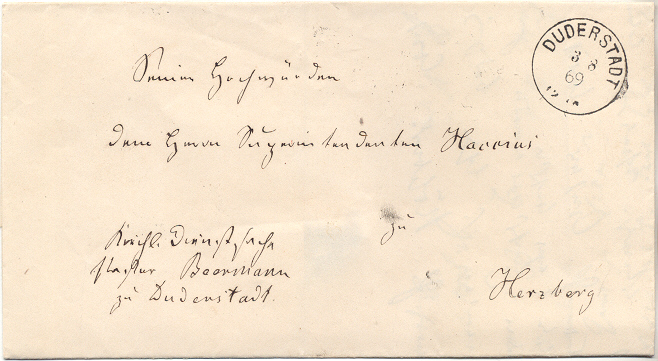 DUDERSTADT
3 8
69
Seiner Hochwürden
dem Herrn Superintendenten Haccius
zu
Herzberg
Kirchl. Dienstsache
Pastor Beermann
zu Duderstadt.